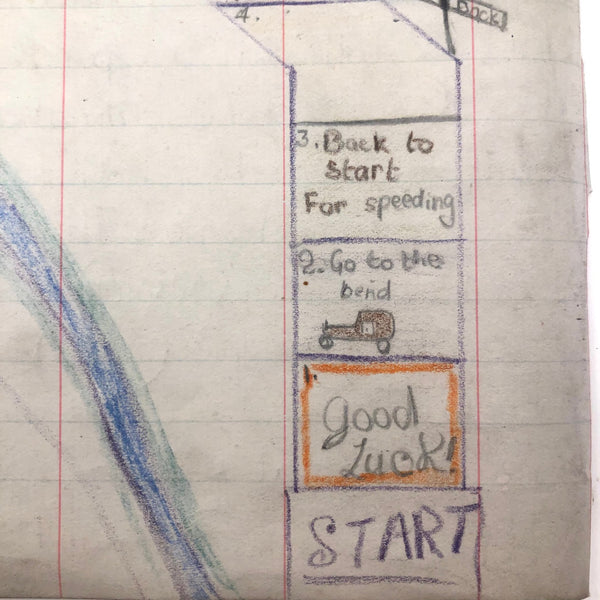 4.
Back!
3. Back to
start
For speeding
2. Go to the
bend
1.
Good
Luck!
START